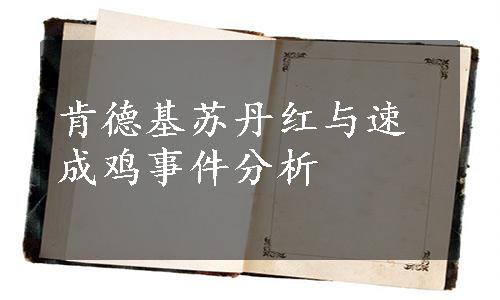 肯德基苏丹红与速
成鸡事件分析